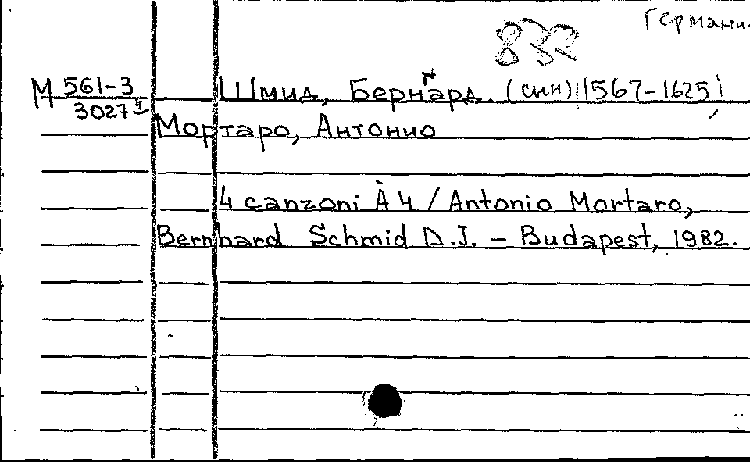 Германи
832
М 561-3
3027
Шмид, Бернхард. (син) 1567-1625;
Мортаро, Антонио
4 canzoni À 4 / Antonio Mortaro,
Bernhard Schmid D.J. – Budapest, 1982.